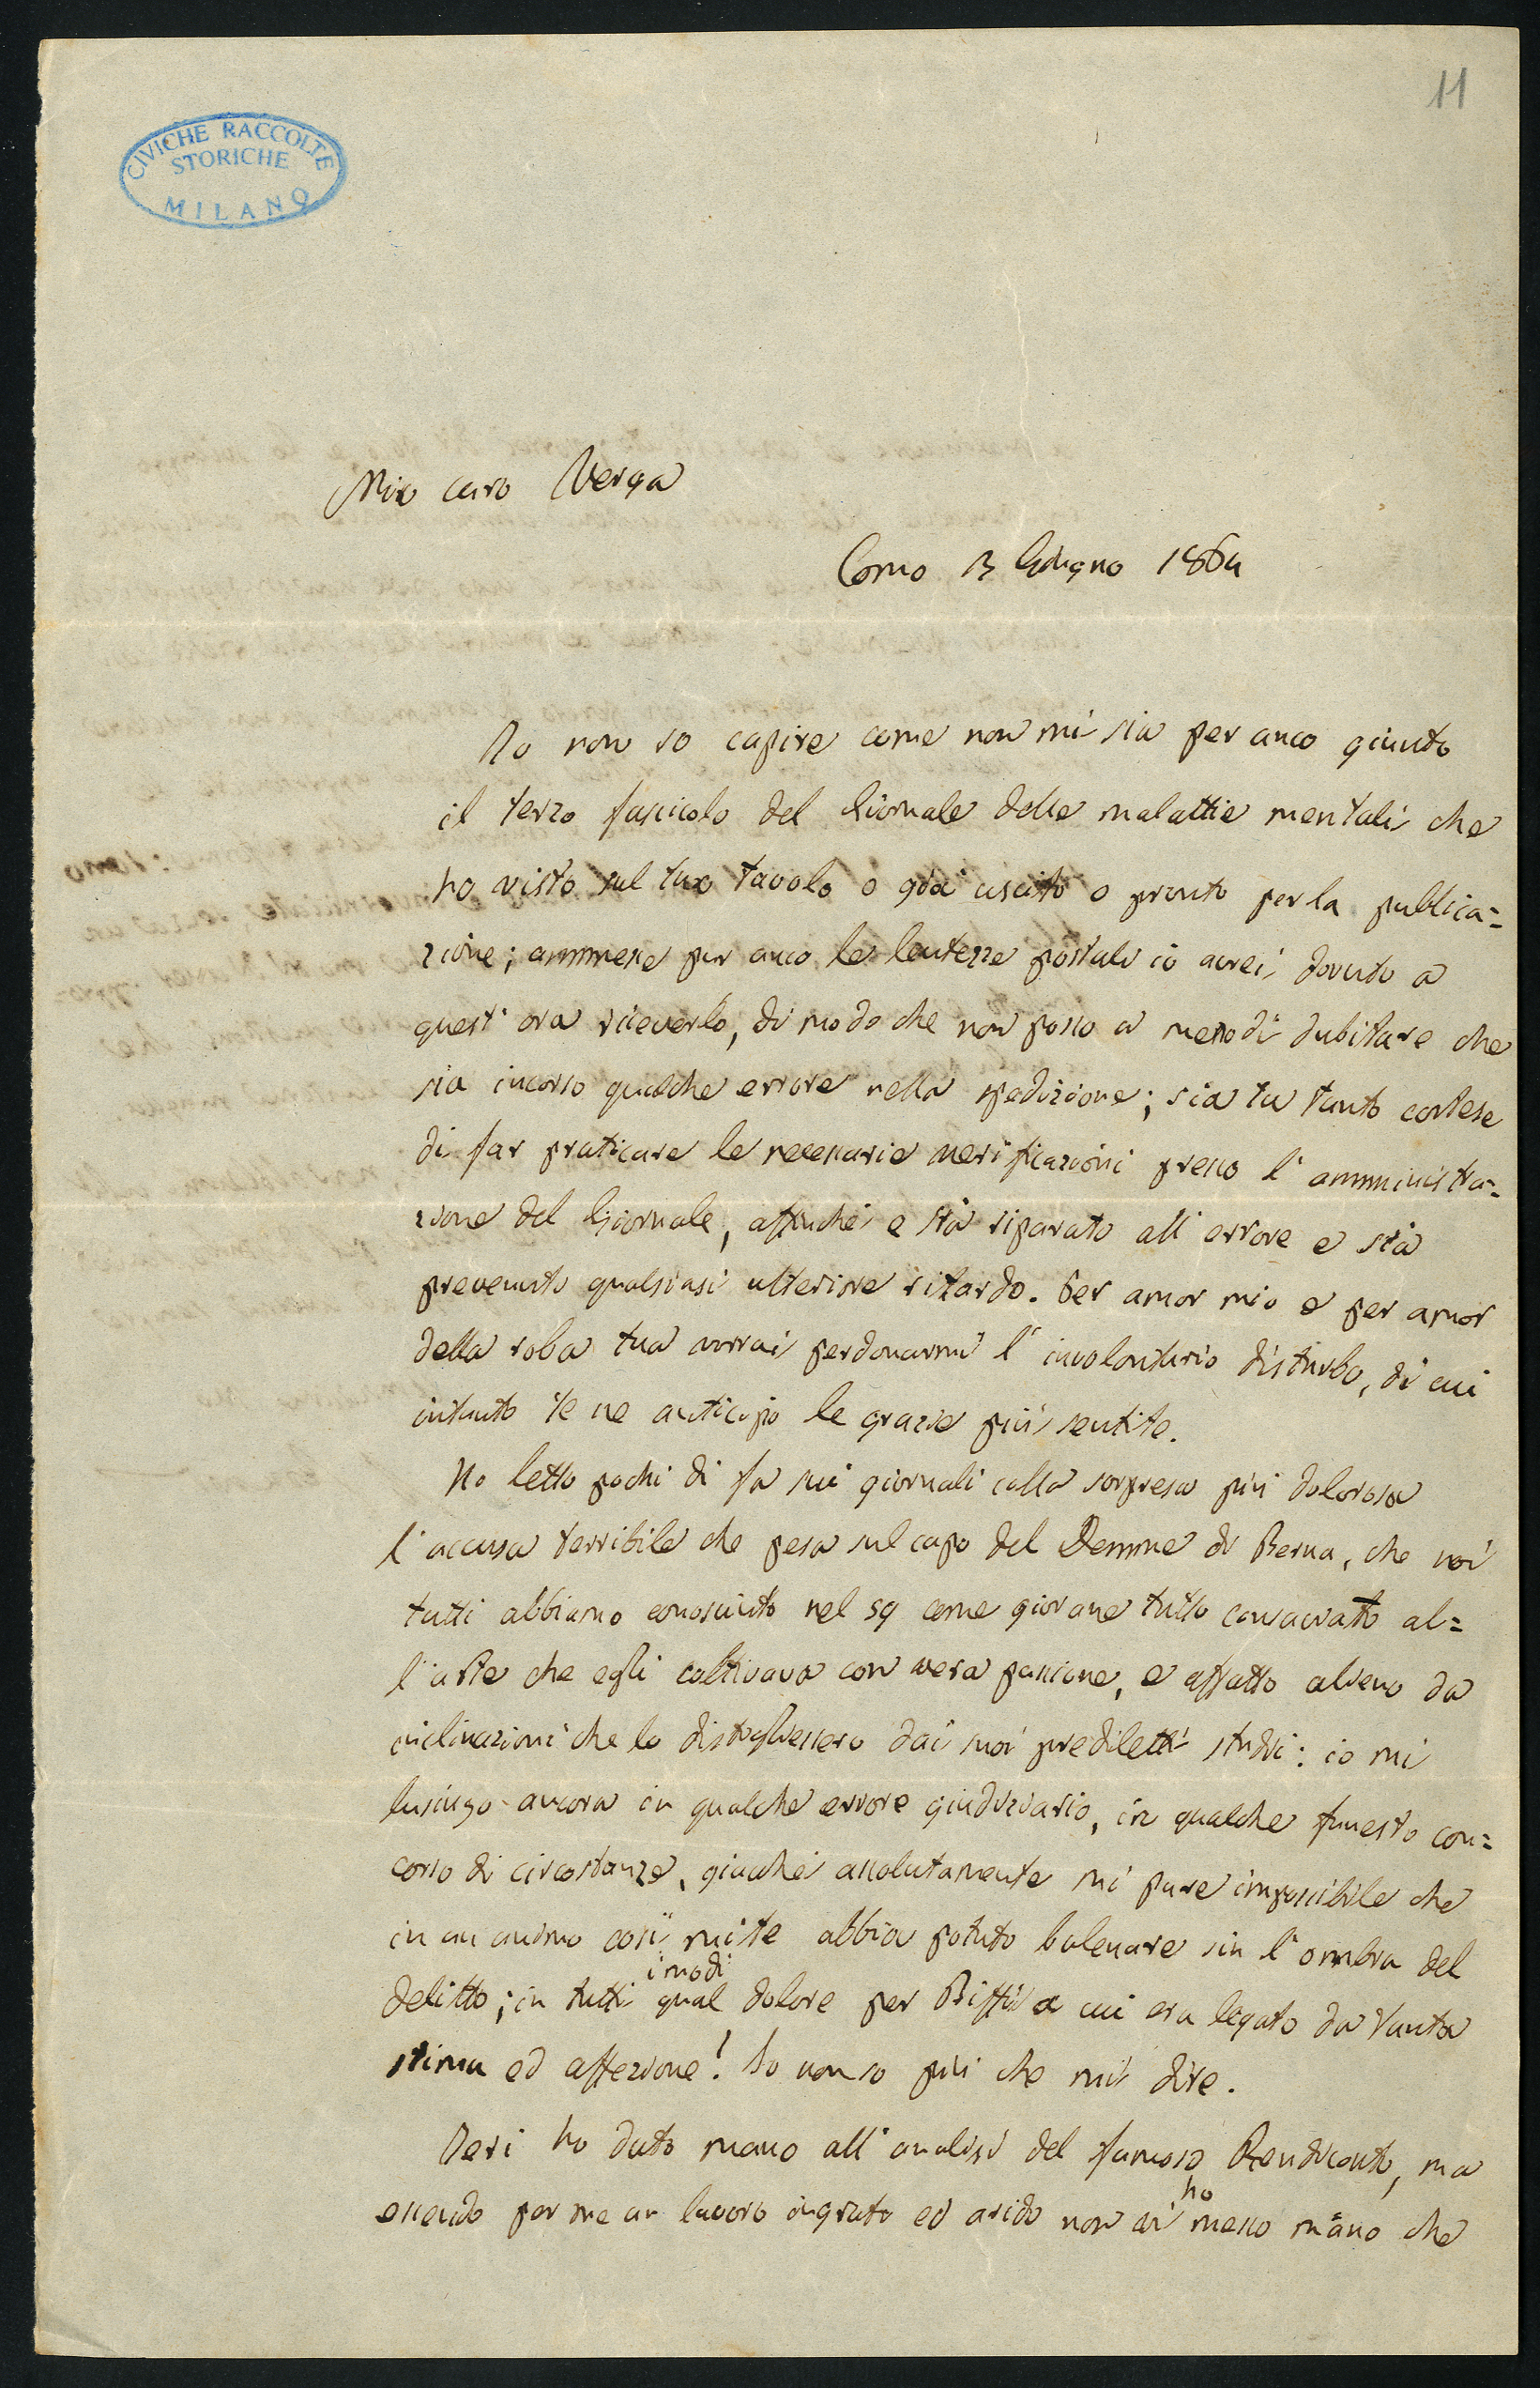 11
CIVICHE RACCOLTE
STORICHE
MILANO
Mio caro Verga
Como 13 Giugno 1864
Io non so capire come non mi sia per anco giunto
il terzo fascicolo del Giornale delle malattie mentali che
ho visto sul tuo tavolo o già uscito o pronto per la publica=
zione; ammesse pur anco le lentezze postali io avrei dovuto a
quest'ora riceverlo, di modo che non posso a meno di dubitare che
sia incorso qualche errore nella spedizione; sia tu tanto cortese
di far praticare le necessarie verificazioni presso l'amministra=
zione del Giornale, affinché e sia riparato all'errore e sia
prevenuto qualsiasi ulteriore ritardo. Per amor mio e per amor
della roba tua vorrai perdonarmi l'involontario disturbo, di cui
intanto te ne anticipo le grazie più sentite.
Ho letto pochi dì fa sui giornali colla sorpresa più dolorosa
l'accusa terribile che pesa sul capo del Demme di Berna, che noi
tutti abbiamo conosciuto nel 59 come giovane tutto consacrato al=
l'arte che egli coltivava con vera passione, e affatto alieno da
inclinazioni che lo distogliessero dai suoi prediletti studii: io mi
lusingo ancora in qualche errore giudiziario, in qualche funesto con=
corso di circostanze, giacché assolutamente mi pare impossibile che
in un animo così mite abbia potuto balenare sin l'ombra del
delitto; in tutti i modi qual dolore per Biffi a cui era legato da tanta
stima ed affezione! Io non so più che mi dire.
Ieri ho dato mano all'analisi del famoso Rendiconto, ma
essendo per me un lavoro ingrato ed arido non vi ho messo mano che